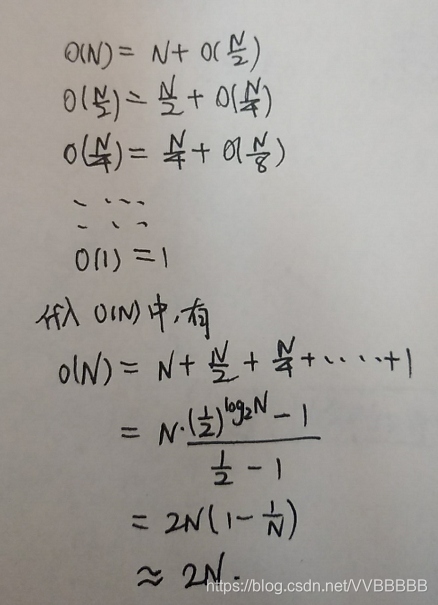 O(N) = N + O(N/2)
O(N/2) = N/2 + O(N/4)
O(N/4) = N/4 + O(N/8)
......
......
O(1) = 1
代入 O(N) 中,有
O(N) = N + N/2 + N/4 + ..... + 1
= N·((1/2)^log₂N - 1)/(1/2 - 1)
= 2N(1 - 1/N)
≈ 2N.
https://blog.csdn.net/VVBBBBB